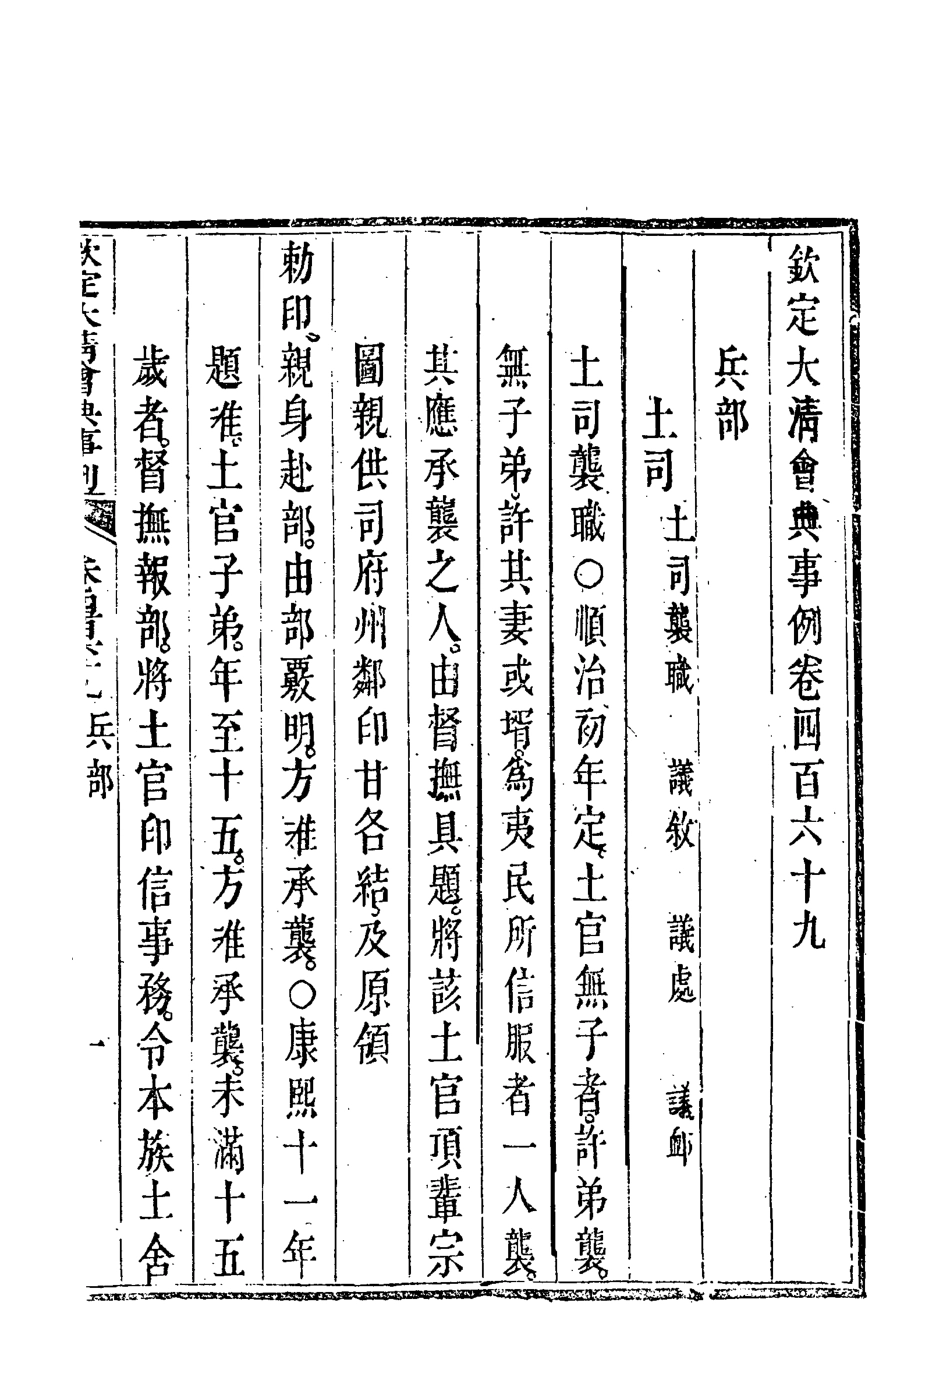 欽定大清會典事例卷四百六十九
兵部
土司 土司襲職 議敘 議處 議卹
土司襲職○順治初年定、土官無子者。許弟襲。
無子弟、許其妻或壻。爲夷民所信服者一人襲。
其應承襲之人。由督撫具題。將該土官頂輩宗
圖親供司府州鄰印甘各結、及原領
勅印、親身赴部。由部覈明。方准承襲。○康熙十一年
題准、土官子弟。年至十五。方准承襲。未滿十五
歲者。督撫報部。將土官印信事務。令本族土舍
欽定大清會典事例 卷四百六十九 兵部 一